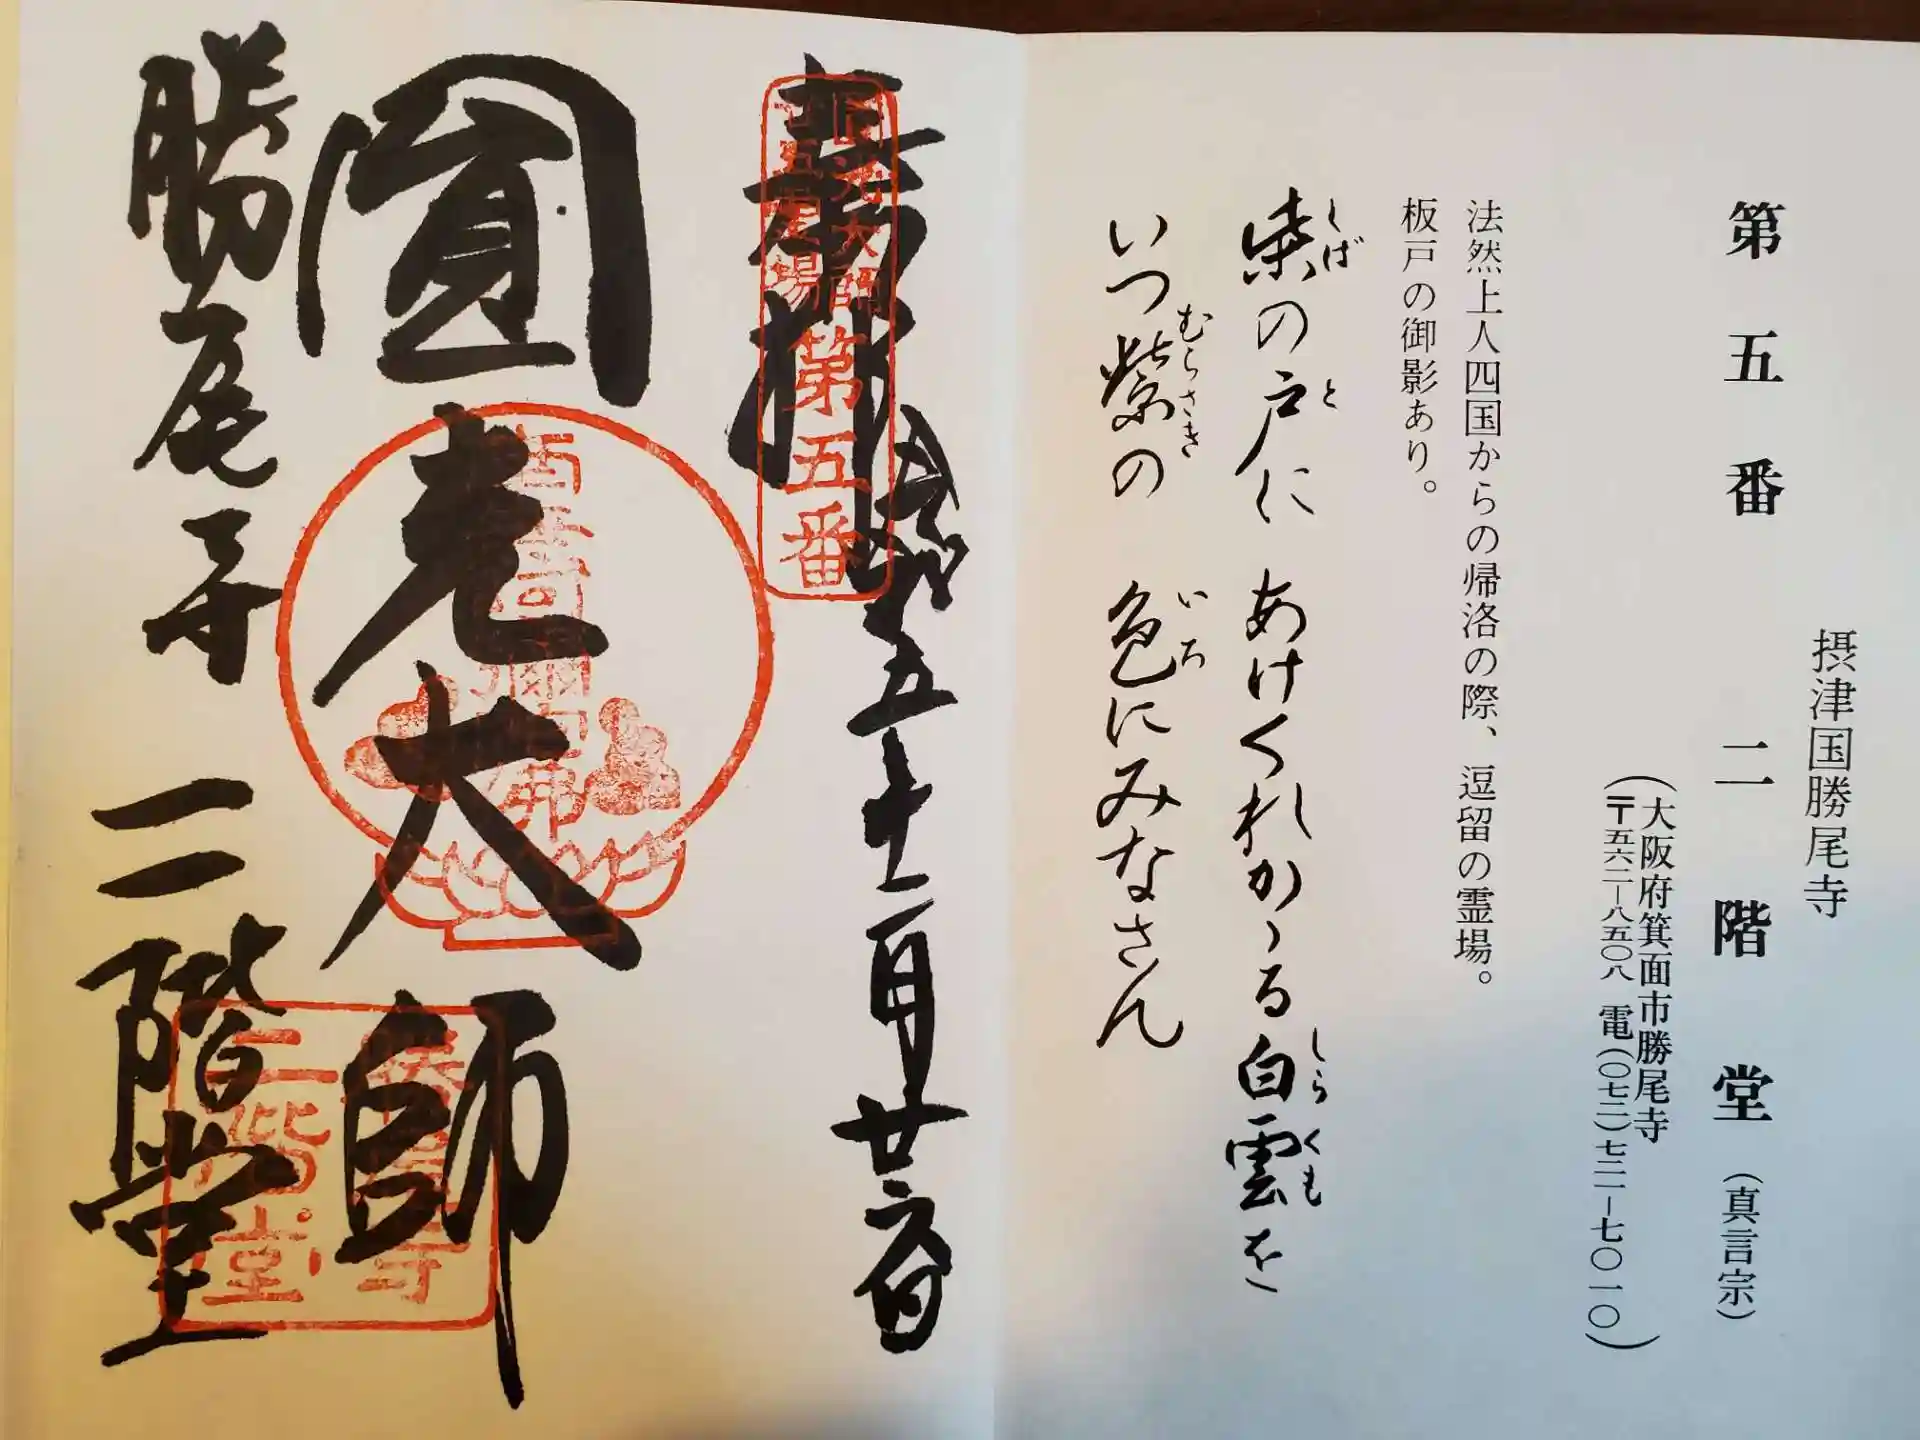 摂津国勝尾寺
第五番 二階堂（真言宗）
（大阪府箕面市勝尾寺
〒五六二ー八五〇八 電（〇七二）七二一ー七〇一〇）
法然上人四国からの帰洛の際、逗留の霊場。
板戸の御影あり。
柴の戸に あけくれかゝる白雲を
しば と しらくも
いつ紫の 色にみなさん
むらさき いろ
奉拝
五年十一月廿六日
圓光大師
第五番
圓光大師
勝尾寺 二階堂
勝尾寺
二階堂